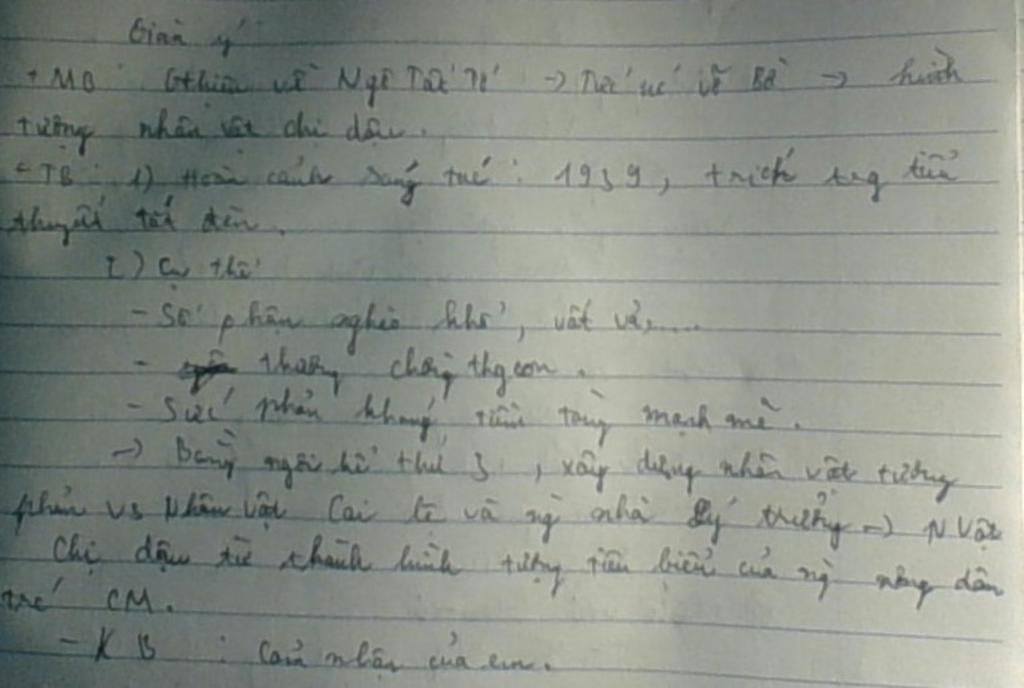 Giàn ý
+ MB : Gthiệu về Ngô Tất Tố → Tức nc vỡ Bờ → hình
tượng nhân vật chị dậu.
+ TB : 1) Hoàn cảnh sáng tác : 1939, trích trg tiểu
thuyết tắt đèn.
2) Cụ thể
- Số phận nghèo khổ, vất vả,....
- thương chồng thg con.
- Sức phản kháng tiềm tàng mạnh mẽ.
→ Bằng ngôi kể thứ 3, xây dựng nhân vật tương
phản vs Nhân vật Cai lệ và ng nhà lý trưởng → N Vật
Chị dậu trở thành hình tượng tiêu biểu của ng nông dân
trc CM.
- KB : Cảm nhận của em.